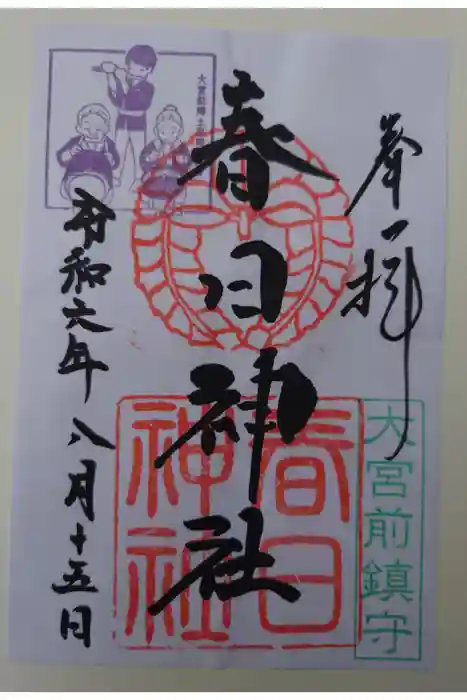 奉拝
春日神社
令和六年八月十五日
春日
神社
大宮前鎮守
大宮前郷土芸能